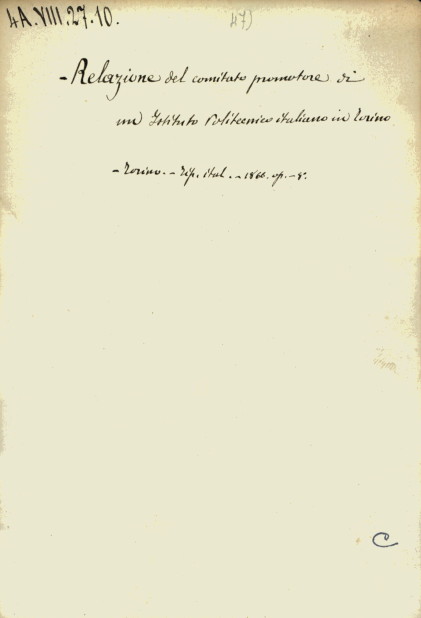 4A.VIII.27.10.
47)
- Relazione del comitato promotore di
un Istituto Politecnico italiano in Torino
- Torino. - Tip. ital. - 1866. op. - 8°.
C